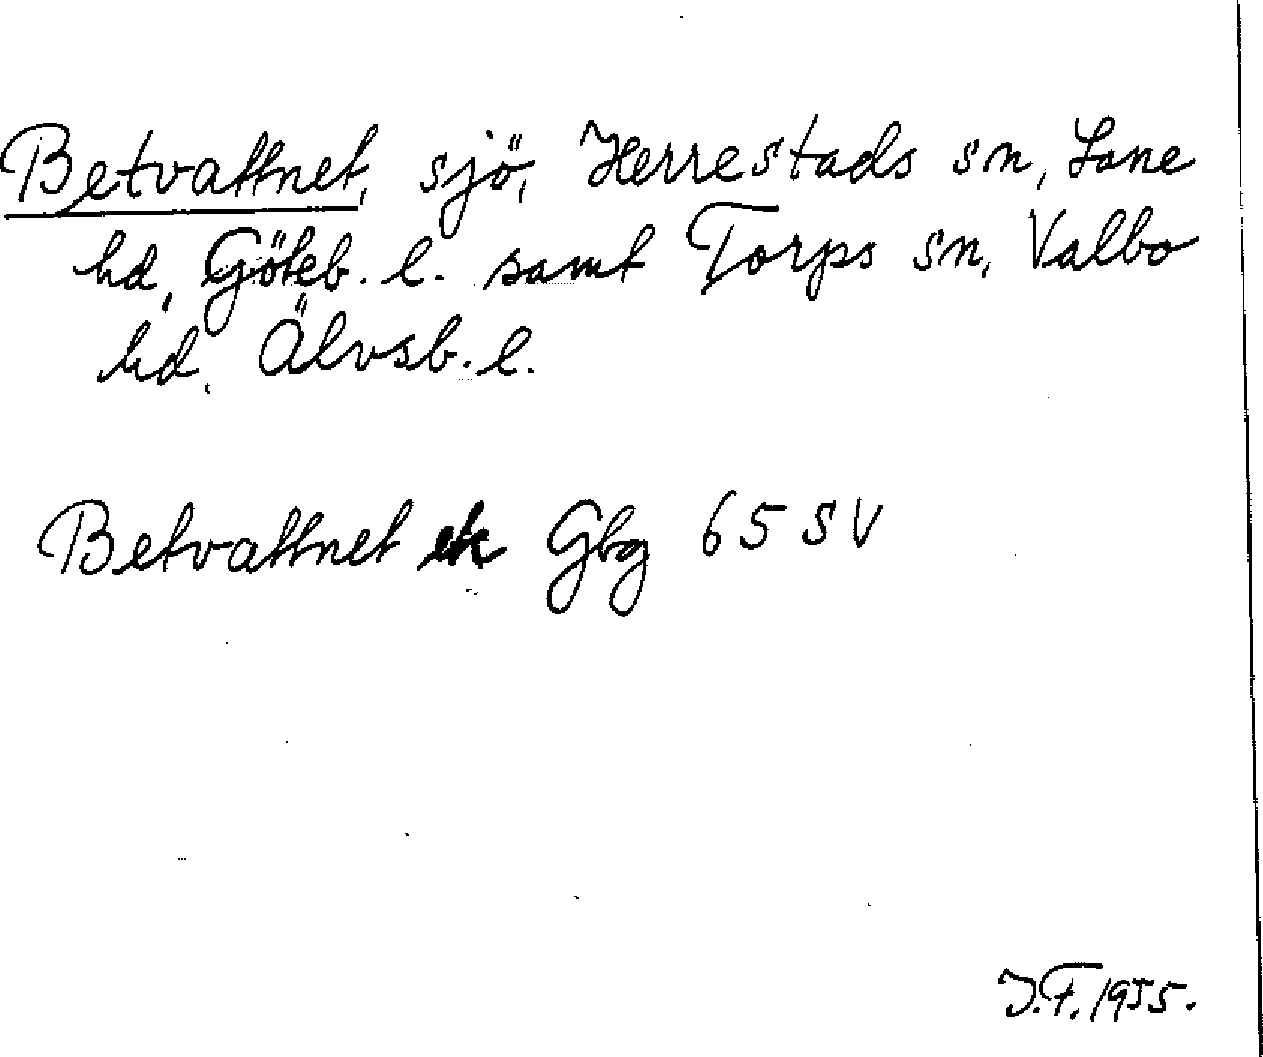 Betvattnet, sjö, Herrestads sn, Lane
hd, Göteb. l. samt Torps sn, Valbo
hd, Älvsb. l.
Betvattnet ek Gbg 65 SV
J.F. 1955.